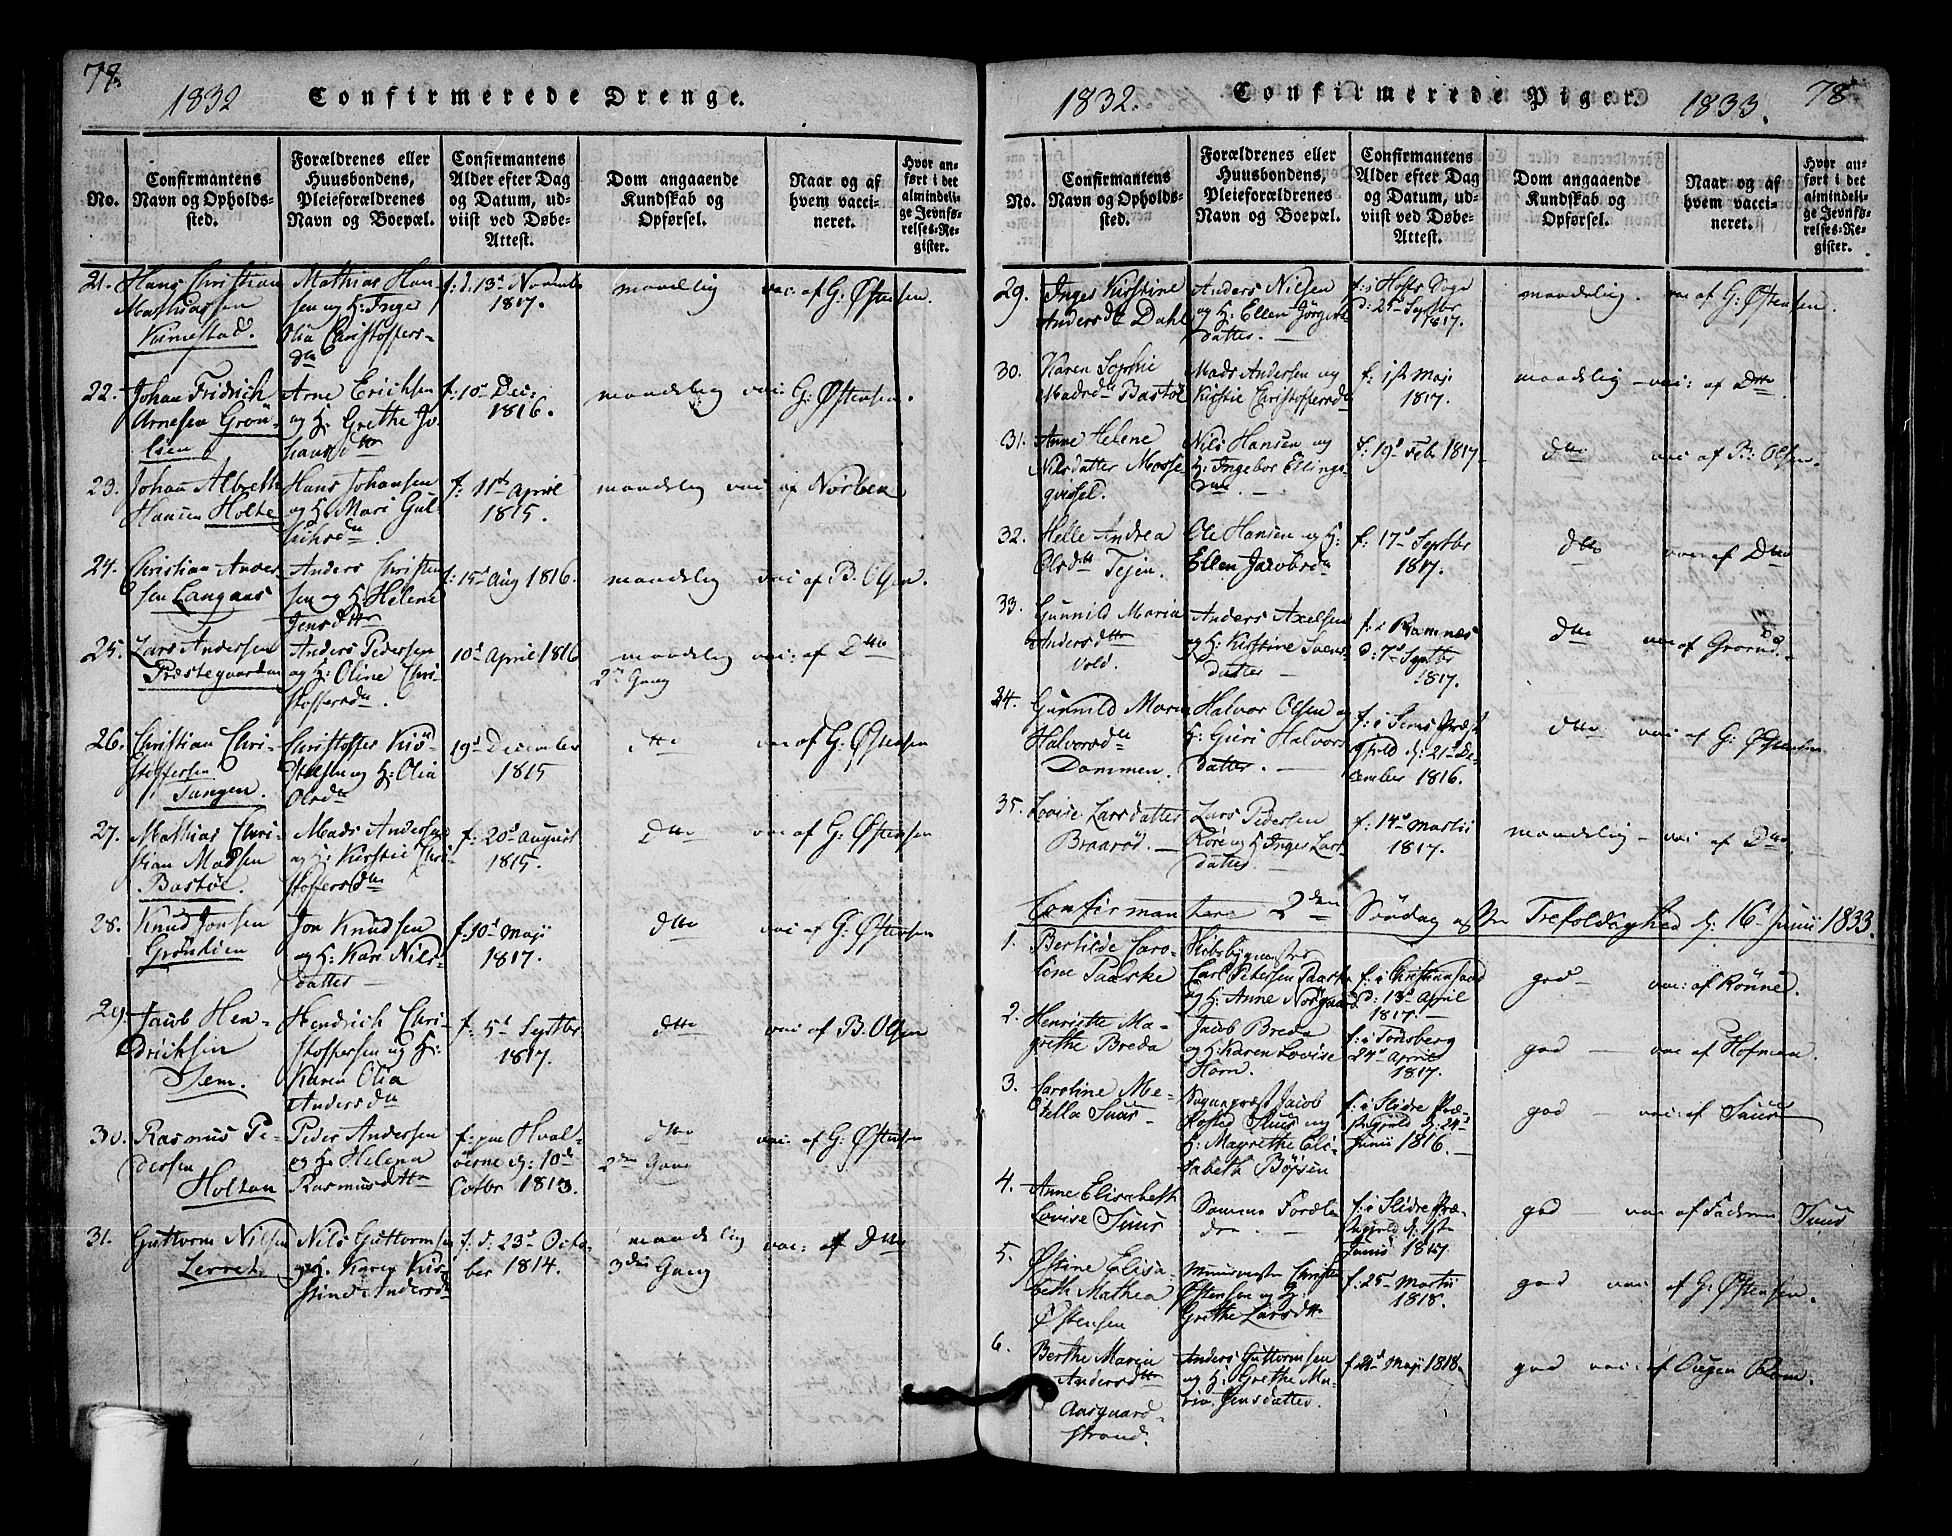 78.
1832
Confirmerede Drenge.
No.
Confirmantens
Navn og Opholds-
sted.
Forældrenes eller
Huusbondens,
Pleieforældrenes
Navn og Boepæl.
Confirmantens
Alder efter Dag
og Datum, ud-
viist ved Døbe-
Attest.
Dom angaaende
Kundskab og
Opførsel.
Naar og af
hvem vacci-
neret.
Hvor an-
ført i det
almindeli-
ge Jevnfø-
relses-Re-
gister.
21. Hans Christian
Mathiassen
Mathias Han-
sen og H: Inger
Olia Christoffers-
dtr
f: d. 13d Novembr
1817.
maadelig
vac: af G: Østensen.
22. Johan Fridrich
Arnesen Grøn-
lien
Arne Erichsen
og H: Grethe Jo-
hansdtr
f: 10d Dec:
1816.
maadelig
vac: G: Østensen.
23. Johan Albreth
Hansen Holte
Hans Johansen
og H: Mari Gul-
f: 11te April
1815.
maadelig
vac: af Nørben
24. Christian Ander-
sen Langaas
Anders Christen-
sen og H: Helene
Jensdtr
f: 15d Aug 1816.
maadelig
vac: af B. Olsen.
25. Lars Andersen
Præstegaarden
Anders Pedersen
og H: Oline Chri-
stoffersdtr.
10d April 1816
maadelig
2den Gang
vac: af Dtto
26. Christian Chri-
stoffersen
Tangen.
Christoffer
og H: Olia
Olsdtr
19d December
1815
dtto
vac: af G: Østensen
27. Mathias Chri-
stian Madsen
Bastøe.
Mads Andersen
og H: Kirstie Chri-
stoffersdtr
f: 20d August
1815.
dtto
vac: af G: Østensen
28. Knud Jonsen
Grønlien
Jon Knudsen
og H: Kari Nils-
datter
f: 10d Maji
1817.
dtto
vac: af G: Østensen
29. Jacob Hen-
drichsen
Sem.
Hendrich Chri-
stoffersen og H:
Karen Olia
Andersdtr
f: 5d Septbr
1817.
dtto
vac: af B. Olsen
30. Rasmus Pe-
dersen
Holtan
Peder Andersen
og H: Helena
Rasmusdtr
f: paa Hval-
øerne d: 10de
Octbr 1813.
dtto
2den Gang
vac: af G: Østensen
31. Guttorm Nilsen
Nils Guttormsen
og H. Karen Kir-
stine Andersdtr
f: d: 23d Octo-
ber 1814.
maadelig
3die Gang
vac: af Dtto
1832.
Confirmerede Piger.
1833.
78
No.
Confirmantens
Navn og Opholds-
sted.
Forældrenes eller
Huusbondens,
Pleieforældrenes
Navn og Boepæl.
Confirmantens
Alder efter Dag
og Datum, ud-
viist ved Døbe-
Attest.
Dom angaaende
Kundskab og
Opførsel.
Naar og af
hvem vacci-
neret.
Hvor an-
ført i det
almindeli-
ge Jevnfø-
relses-Re-
gister.
29. Inger Kirstine
Andersdtr Dahl
Anders Nilsen
og H: Ellen Jörgens-
datter. —
f: i
d: 21d Septbr
1817.
maadelig.
vac: af G: Østensen.
30. Karen Sophie
Madsdtr Bastøe
Mads Andersen og
Kirstie Christoffersdtr
f: 1ste Maji
1817.
maadelig — vac: af Dtto.
31. Anne Helene
Nilsdatter
Nils Hansen og
H: Ingebor Ellings-
dtr. —
f: 19d Feb. 1817.
dtto
vac: af B: Olsen.
32. Helle Andrea
Olsdtr Tejen.
Ole Hansen og H:
Ellen Jacobsdtr
f: 17d Septbr
1817.
dtto
vac: af Dtto
33. Gunnild Maria
Andersdtr
Vold.
Anders Axelsen
og H: Kirstine Svens-
datter —
f: i Ramnæs
d: 7d Septbr
1817.
dtto
vac: af Grorud.
34. Gunnild Maria
Halvorsdtr
Dammen.
Halvor Olsen og
H: Guri Halvors-
datter. —
f: i Sems Præste-
gjeld d: 21d De-
cember 1816.
dtto
vac: af G: Østensen
35. Lovise Larsdatter
Braarød. —
Lars Pedersen
Röre og H Inger Lars-
datter —
f: 14d Martii
1817.
maadelig —
vac: af Dtto
Confirmantere 2den Søndag efter Trefoldighed d: 16d Junii 1833.
1. Bertilde Caro-
line Paaske
Skibsbygmester
Carl Petersen Paaske
og H: Anne Norgaard
f: i Christiansand
d: 13d April
1817. —
god —
vac: af Rønne.
2. Henriette Ma-
grethe Breda
Jacob Breda
og H: Karen Lovise
Horn.
f: i Tønsberg
24d April
1817.
god —
vac: af Hofman.
3. Caroline Me-
tella Suur —
Sognepræst Jacob
Rosted Suur og
H: Magrethe Eli-
sabeth Böjsen
f: i Slidre Præ-
stegjeld d: 24d
Junii 1816. —
god —
vac: af Suur
4. Anne Elisabeth
Lovise Suur
Samme Foræl-
dre —
f: i Slidre Præ-
stegjeld d: 1ste
Junii 1817
god —
vac: af Faderen Suur
5. Østine Elisa-
beth Mathea
Østensen
Christen
Østensen og H:
Grethe Larsdtr
f: 25d Martii
1818.
god
vac: af G: Østensen.
6. Berthe Maria
Andersdtr
Aasgaard-
strand.
Anders Guttormsen
og H: Grethe Ma-
ria Jensdatter.
f: 21d Maji 1818.
god
vac: af